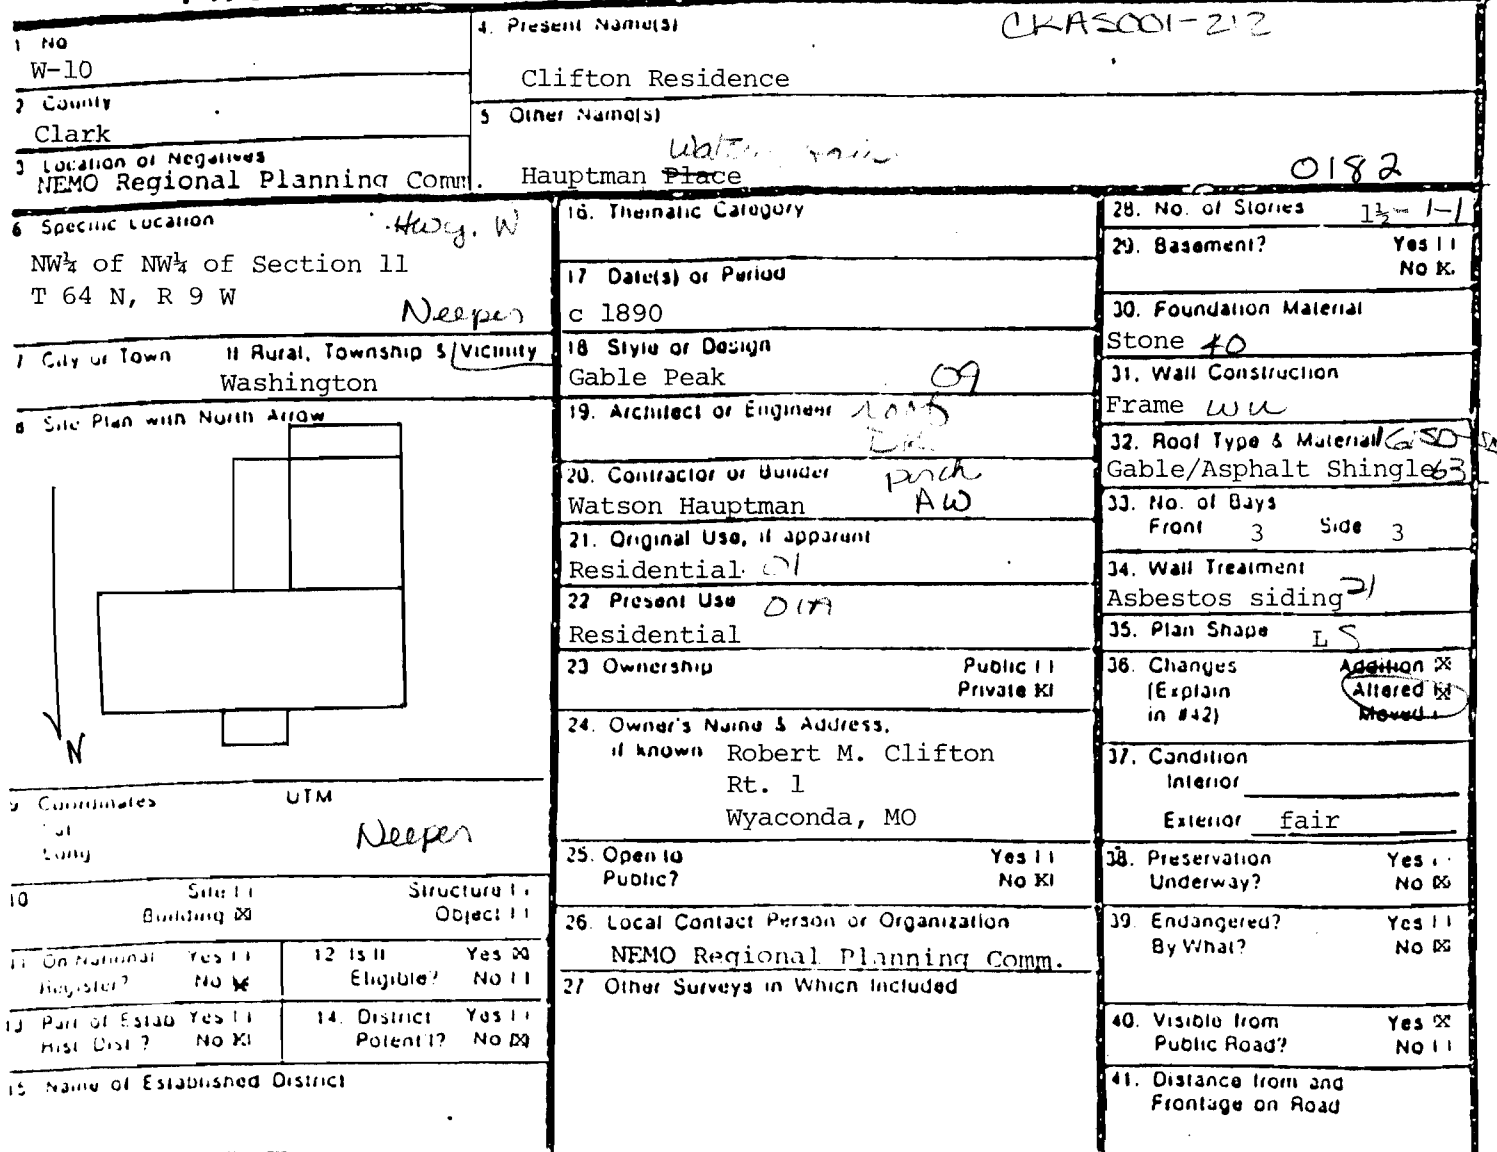 1 No
W-10
4. Present Name(s)
CKAS001-212
Clifton Residence
2 County
Clark
5 Other Name(s)
3 Location of Negatives
NEMO Regional Planning Comm.
Hauptman Place
0182
6 Specific Location
Hwy. W
NW¼ of NW¼ of Section 11
T 64 N, R 9 W
Neeper
7 City or Town If Rural, Township & Vicinity
Washington
8 Site Plan with North Arrow
N
9 Coordinates UTM
Lat
Long
Neeper
10 Site [ ] Structure [ ]
Building [X] Object [ ]
11 On National Register? Yes [ ] No [X]
12 Is It Eligible? Yes [X] No [ ]
13 Part of Estab Hist Dist? Yes [ ] No [X]
14. District Potent'l? Yes [ ] No [X]
15 Name of Established District
16. Thematic Category
17 Date(s) or Period
c 1890
18 Style or Design
Gable Peak 09
19. Architect or Engineer
20. Contractor or Builder
porch
Watson Hauptman AW
21. Original Use, if apparent
Residential 01
22 Present Use 01A
Residential
23 Ownership Public [ ]
Private [X]
24. Owner's Name & Address,
if known Robert M. Clifton
Rt. 1
Wyaconda, MO
25. Open to Yes [ ]
Public? No [X]
26. Local Contact Person or Organization
NEMO Regional Planning Comm.
27 Other Surveys in Which Included
28. No. of Stories 1½-1-1
29. Basement? Yes [ ]
No [X]
30. Foundation Material
Stone 40
31. Wall Construction
Frame WU
32. Roof Type & Material
Gable/Asphalt Shingle 63
33. No. of Bays
Front 3 Side 3
34. Wall Treatment
Asbestos siding 21
35. Plan Shape L S
36. Changes Addition [X]
(Explain Altered [X]
in #42) Moved [ ]
37. Condition
Interior
Exterior fair
38. Preservation Yes [ ]
Underway? No [X]
39. Endangered? Yes [ ]
By What? No [X]
40. Visible from Yes [X]
Public Road? No [ ]
41. Distance from and
Frontage on Road